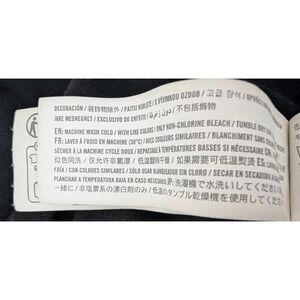 DECORACIÓN / 裝飾物除外 / PAITSI KORISTE / S VÝJIMKOU OZDOB / 고급 장식 /
IKKE MEDREGNET / EXCLUSIVO DO ENFEITE / 不包括飾物
EN: MACHINE WASH COLD / WITH LIKE COLORS / ONLY NON-CHLORINE BLEACH / TUMBLE DRY
FR: LAVER À FROID EN MACHINE (30°C) / AVEC COULEURS SIMILAIRES / BLANCHIMENT SANS
SÉCHER À LA MACHINE CYCLE DOUX / REPASSAGE À TEMPÉRATURES BASSES SI NÉCESSAIRE
似色同洗 / 仅允许非氯漂 / 低温翻转干衣 / 如果需要可低温熨烫
FRÍA / CON COLORES SIMILARES / SÓLO USAR BLANQUEADOR SIN CLORO / SECAR EN SECADORA A
PLANCHAR A TEMPERATURA BAJA EN CASO NECESARIO JP: 洗濯機で水洗いしてください
一緒に / 非塩素系の漂白剤のみ / 低温のタンブル乾燥機を使用してく